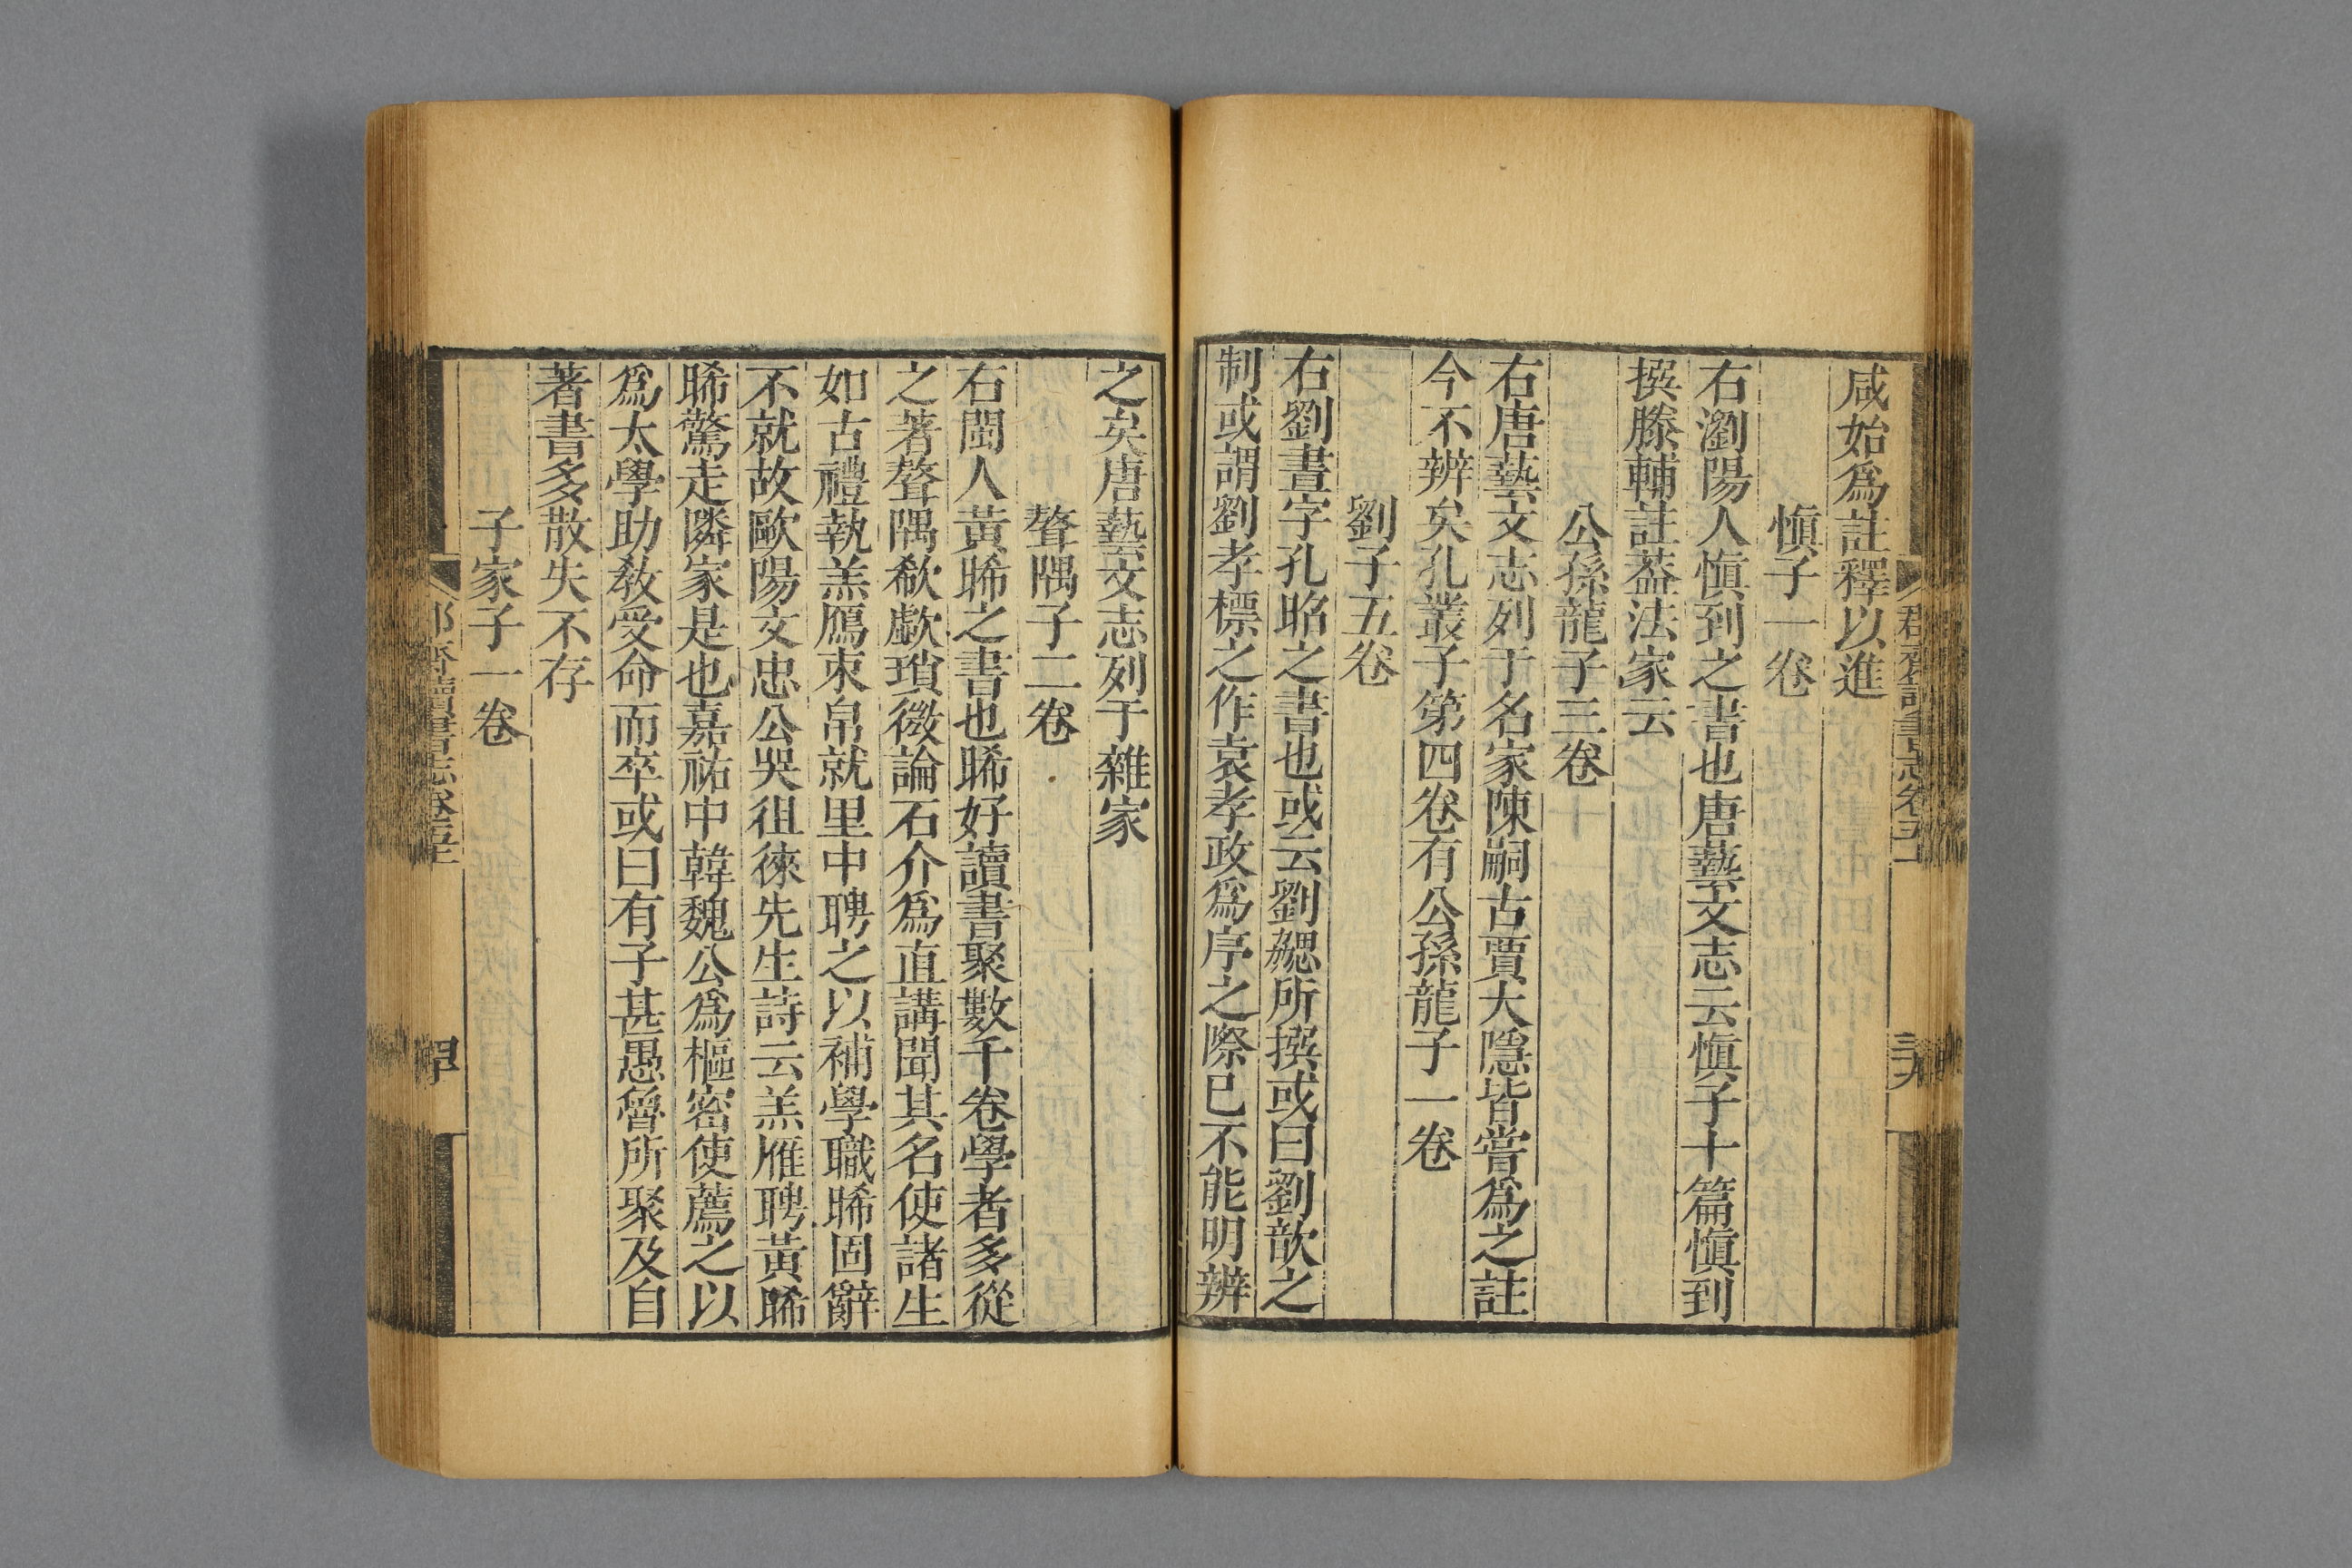 咸始爲註釋以進
愼子一卷
右瀏陽人愼到之書也唐藝文志云愼子十篇愼到
撰滕輔註葢法家云
公孫龍子三卷
右唐藝文志列于名家陳嗣古賈大隱皆嘗爲之註
今不辨矣孔叢子第四卷有公孫龍子一卷
劉子五卷
右劉晝字孔昭之書也或云劉勰所撰或曰劉歆之
制或謂劉孝標之作袁孝政爲序之際已不能明辨
之矣唐藝文志列于雜家
聱隅子二卷
右閩人黃晞之書也晞好讀書聚數千卷學者多從
之著聱隅欷歔瑣微論石介爲直講聞其名使諸生
如古禮執羔鴈束帛就里中聘之以補學職晞固辭
不就故歐陽文忠公哭徂徠先生詩云羔雁聘黃晞
晞驚走隣家是也嘉祐中韓魏公爲樞密使薦之以
爲太學助敎受命而卒或曰有子甚愚魯所聚及自
著書多散失不存
子家子一卷